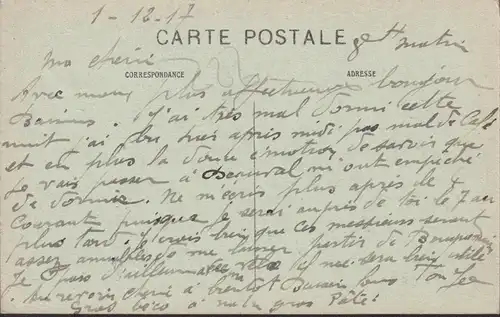 1-12-17
CARTE POSTALE
matin
Ma chérie
CORRESPONDANCE ADRESSE
Avec mes plus affectueux bonjour
J'ai très mal dormi cette
nuit j'ai bu hier après midi pas mal de Café
et en plus la douce émotion de savoir que
je vais passer à Beauval m'ont empêché
de dormir. Ne m'écris plus après le 4
Courant puisque je serai auprès de toi le 7 au
plus tard. Je crois bien que ces messieurs seront
assez aimables de me laisser partir de
Je d'ailleurs il me sera bien utile
Au revoir chérie à bientôt Ton
Gros à mon gros Pâté!